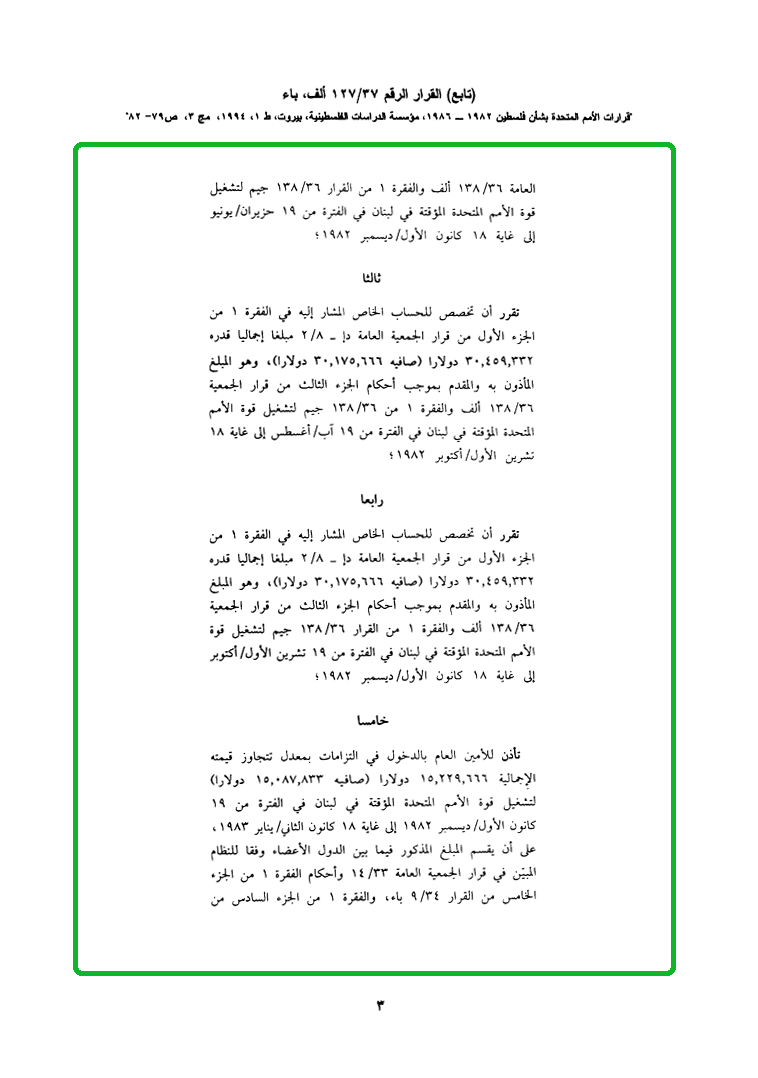 (تابع) القرار الرقم ١٢٧/٣٧ ألف، باء
"قرارات الأمم المتحدة بشأن فلسطين ١٩٨٢ ــ ١٩٨٦، مؤسسة الدراسات الفلسطينية، بيروت، ط ١، ١٩٩٤، مج ٣، ص٧٩- ٨٢"
العامة ١٣٨/٣٦ ألف والفقرة ١ من القرار ١٣٨/٣٦ جيم لتشغيل
قوة الأمم المتحدة المؤقتة في لبنان في الفترة من ١٩ حزيران/يونيو
إلى غاية ١٨ كانون الأول/ديسمبر ١٩٨٢؛
ثالثا
تقرر أن تخصص للحساب الخاص المشار إليه في الفقرة ١ من
الجزء الأول من قرار الجمعية العامة دإ ــ ٢/٨ مبلغا إجماليا قدره
٣٠,٤٥٩,٣٣٢ دولارا (صافيه ٣٠,١٧٥,٦٦٦ دولارا)، وهو المبلغ
المأذون به والمقدم بموجب أحكام الجزء الثالث من قرار الجمعية
١٣٨/٣٦ ألف والفقرة ١ من ١٣٨/٣٦ جيم لتشغيل قوة الأمم
المتحدة المؤقتة في لبنان في الفترة من ١٩ آب/أغسطس إلى غاية ١٨
تشرين الأول/أكتوبر ١٩٨٢؛
رابعا
تقرر أن تخصص للحساب الخاص المشار إليه في الفقرة ١ من
الجزء الأول من قرار الجمعية العامة دإ ــ ٢/٨ مبلغا إجماليا قدره
٣٠,٤٥٩,٣٣٢ دولارا (صافيه ٣٠,١٧٥,٦٦٦ دولارا)، وهو المبلغ
المأذون به والمقدم بموجب أحكام الجزء الثالث من قرار الجمعية
١٣٨/٣٦ ألف والفقرة ١ من القرار ١٣٨/٣٦ جيم لتشغيل قوة
الأمم المتحدة المؤقتة في لبنان في الفترة من ١٩ تشرين الأول/أكتوبر
إلى غاية ١٨ كانون الأول/ديسمبر ١٩٨٢؛
خامسا
تأذن للأمين العام بالدخول في التزامات بمعدل تتجاوز قيمته
الإجمالية ١٥,٢٢٩,٦٦٦ دولارا (صافيه ١٥,٠٨٧,٨٣٣ دولارا)
لتشغيل قوة الأمم المتحدة المؤقتة في لبنان في الفترة من ١٩
كانون الأول/ديسمبر ١٩٨٢ إلى غاية ١٨ كانون الثاني/يناير ١٩٨٣،
على أن يقسم المبلغ المذكور فيما بين الدول الأعضاء وفقا للنظام
المبيّن في قرار الجمعية العامة ١٤/٣٣ وأحكام الفقرة ١ من الجزء
الخامس من القرار ٩/٣٤ باء، والفقرة ١ من الجزء السادس من
٣